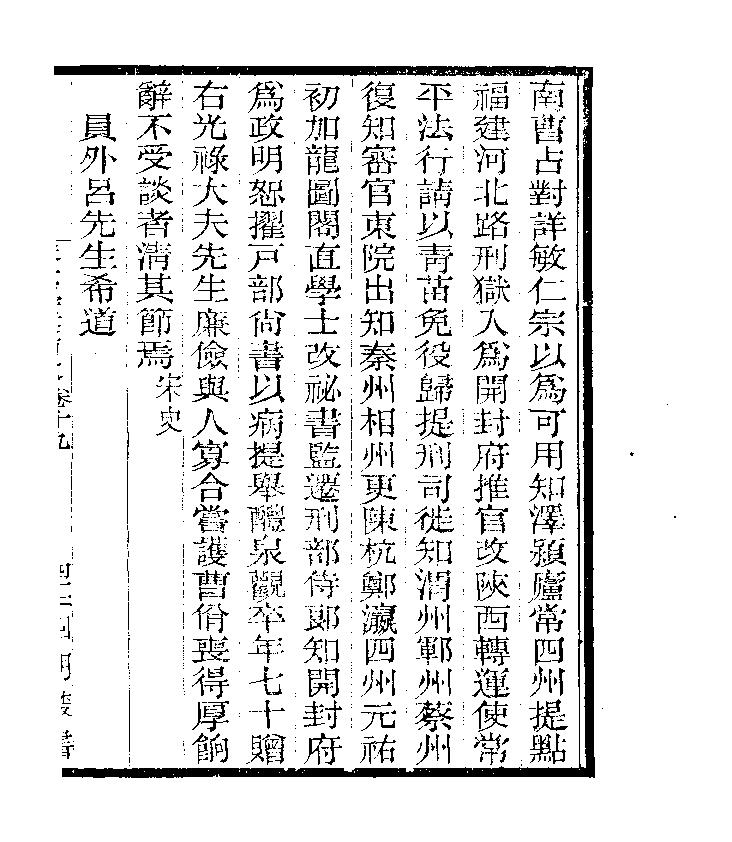 南曹占對詳敏仁宗以為可用知澤潁廬常四州提點
福建河北路刑獄入為開封府推官改陝西轉運使常
平法行請以靑苗免役歸提刑司徙知渭州鄆州蔡州
復知審官東院出知秦州相州更陳杭鄭瀛四州元祐
初加龍圖閣直學士改祕書監遷刑部侍郎知開封府
爲政明恕擢戸部尙書以病提舉醴泉觀卒年七十贈
右光祿大夫先生廉儉與人寡合嘗護曹佾喪得厚餉
辭不受談者淸其節焉宋史
員外呂先生希道
卷十九
四明叢書